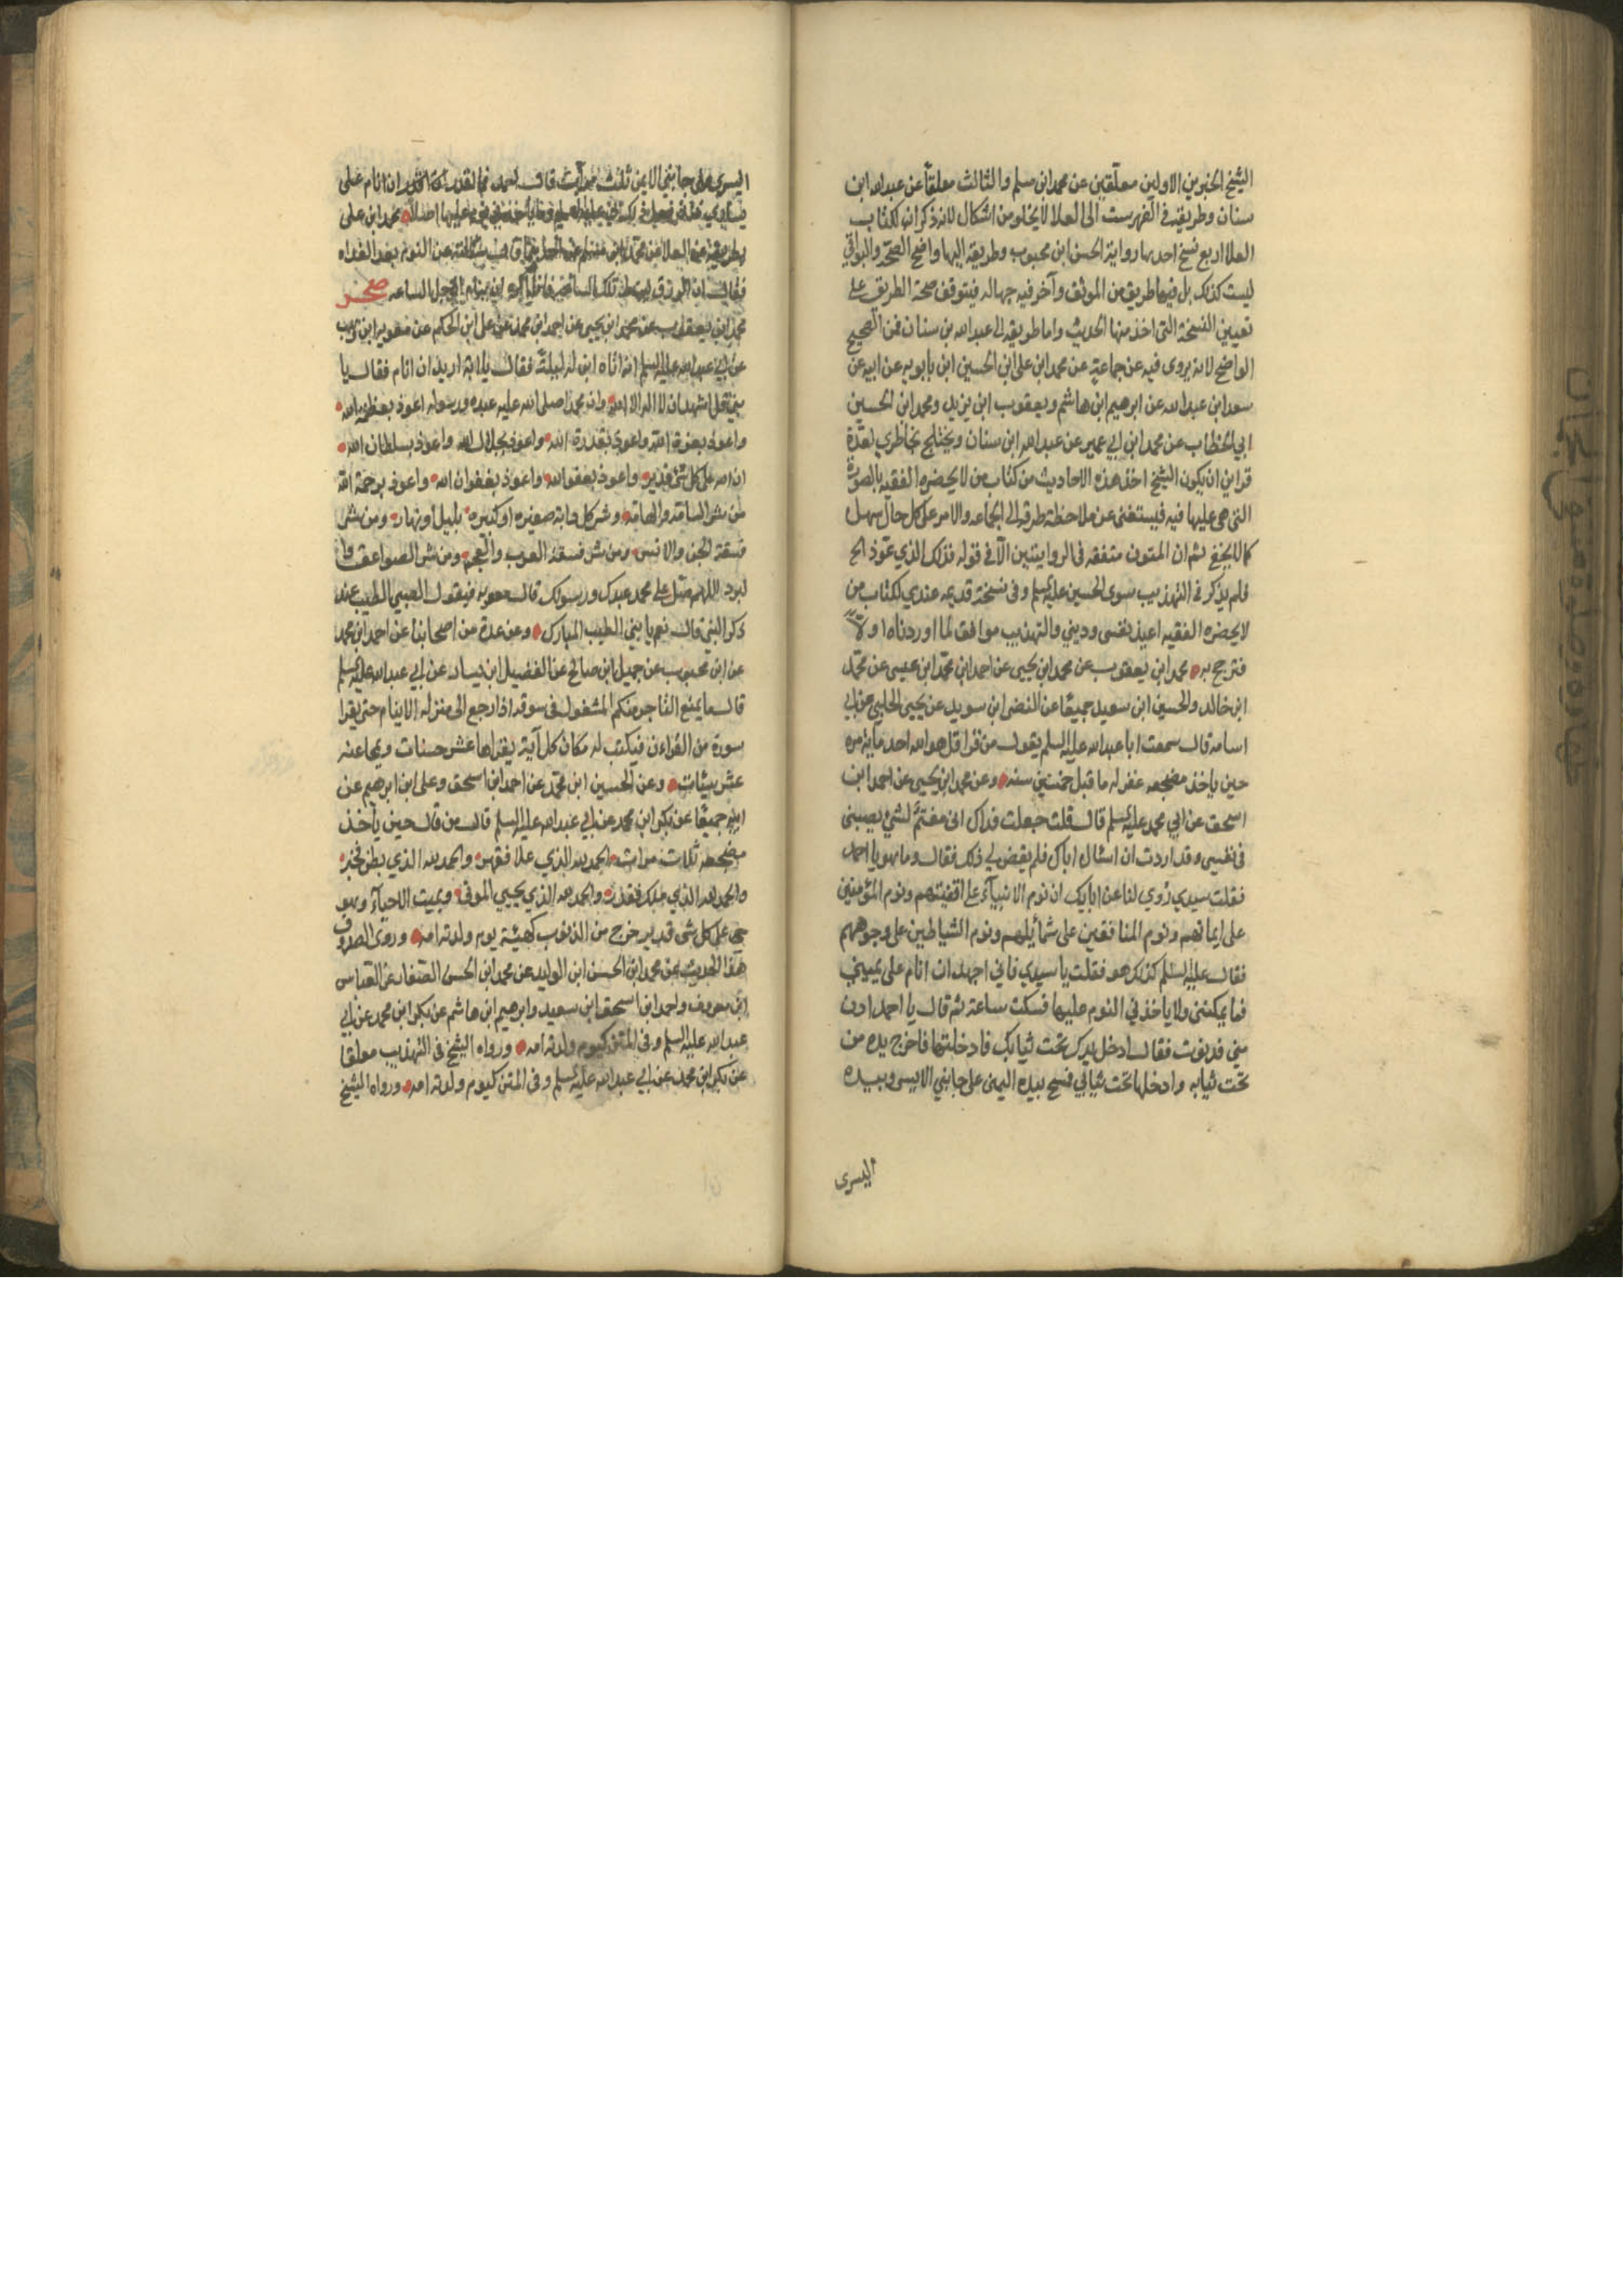 الشيخ الخبرين الاولين معلقين عن محمد ابن مسلم والثالث معلقاً عن عبدالله ابن
سنان وطريقه في الفهرست الى العلا لا يخلو من اشكال لانه ذكر ان لكتاب
العلا اربع نسخ احديها رواية الحسن ابن محبوب وطريقه اليها واضح الصحة والبواقي
ليست كذلك بل فيها طريق من الموثق وآخر فيه جهالة فيتوقف صحة الطريق على
تعيين النسخة التى اخذ منها الحديث واما طريقه الى عبدالله بن سنان فمن الصحيح
الواضح لانه يروى فيه عن جماعة عن محمد ابن على ابن الحسين ابن بابويه عن ابيه عن
سعد ابن عبدالله عن ابرهيم ابن هاشم ويعقوب ابن يزيد ومحمد ابن الحسين
ابي الخطاب عن محمد ابن ابي عمير عن عبدالله ابن سنان ويختلج بخاطري لعدة
قراين ان يكون الشيخ اخذ هذه الاحاديث من كتاب من لا يحضره الفقيه بالصورة
التى هي عليها فيه فيستغنى عن ملاحظة طرقه الى الجماعه والامر على كل حال سهل
كما لا يخفى ثم ان المتون متفقه في الروايتين الا في قوله فذلك الذي عوّذ الخ
فلم يذكر في التهذيب سوى الحسين عليه السلم وفى نسخة قديمه عندي لكتاب من
لا يحضره الفقيه اعيذ نفسى وديني والتهذيب موافق لما اوردناه اولاً
فترجح به محمد ابن يعقوب عن محمد ابن يحيى عن احمد ابن محمد ابن عيسى عن محمد
ابن خالد والحسين ابن سعيد جميعًا عن النضر ابن سويد عن يحيى الحلبي عن ابي
اسامه قال سمعت ابا عبدالله عليه السلم يقول من قرا قل هو الله احد ماية مره
حين ياخذ مضجعه غفر له ما قبل خمسين سنه وعن محمد ابن يحيى عن احمد ابن
اسحق عن ابي محمد عليه السلم قال قلت جعلت فداك انى مغتم لشئ يصيبنى
فى نفسى وقد اردت ان اسئال اباك فلم يقض لي ذلك فقال وما هو يا احمد
فقلت سيدي روي لنا عن ابائك ان نوم الانبيآء على اقفيتهم ونوم المؤمنين
على ايمانهم ونوم المنافقين على شمائلهم ونوم الشياطين على وجوههم
فقال عليه السلم كذلك هو فقلت يا سيدي فاني اجهد ان انام على يميني
فما يمكننى ولا ياخذني النوم عليها فسكت ساعة ثم قال يا احمد ادن
مني فدنوت فقال ادخل يدك تحت ثيابك فادخلتها فاخرج يده من
تحت ثيابه وادخلها تحت ثيابي فمسح بيده اليمنى على جانبي الايسر وبيده
اليسرى
اليسرى على جانبى الايمن ثلث مرات قال احمد فما اقدر ان انام على
يسارى عليها اصلاً محمد ابن على
عن النوم بعد الغداه
فقال ان الرزق الساعة الساعه صحر
محمد ابن يعقوب عن محمد ابن يحيى عن احمد ابن محمد عن على ابن الحكم عن معويه ابن وهب
عن ابي عبدالله عليه السلم انه اتاه ابن له ليلةً فقال يا ابة اريد ان انام فقال يا
بني قل اشهد ان لا اله الا الله وان محمدا صلى الله عليه عبده ورسوله اعوذ بعظمة الله
واعوذ بعزة الله واعوذ بقدرة الله واعوذ بجلال الله واعوذ بسلطان الله
ان الله على كل شئ قدير واعوذ بعفو الله واعوذ بغفران الله واعوذ برحمة الله
من شر السامة والهامة وشر كل دابة صغيره او كبيره بليل او نهار ومن شر
فسقة الجن والانس ومن شر فسقة العرب والعجم ومن شر الصواعق وا
لبرد اللهم صل على محمد عبدك ورسولك قال معويه فيقول الصبي الطيب عند
ذكر النبي قال نعم يا بني الطيب المبارك وعن عدة من اصحابنا عن احمد ابن محمد
عن ابن محبوب عن جميل ابن صالح عن الفضيل ابن يسار عن ابي عبدالله عليه السلم
قال ما يمنع التاجر منكم المشغول فى سوقه اذا رجع الى منزله الا ينام حتى يقرا
سورة من القراءن فيكتب له مكان كل آية يقراها عشر حسنات ويمحا عنه
عشر سيئات وعن الحسين ابن محمد عن احمد ابن اسحق وعلى ابن ابرهيم عن
ابيه جميعًا عن بكر ابن محمد عن ابي عبدالله عليه السلم قال من قال حين ياخذ
مضجعه ثلاث مرات الحمد لله الذي علا فقهر والحمد لله الذي بطن فخبر
والحمد لله الذي ملك فقدر والحمد لله الذي يحيي الموتى ويميت الاحيآء وهو
على كل شى قدير خرج من الذنوب كهيئة يوم ولدته امه وروى الصدوق
هذا الحديث عن محمد ابن الحسن ابن الوليد عن محمد ابن الحسن الصفار عن العباس
ابن معروف واحمد ابن اسحق ابن سعيد وابرهيم ابن هاشم عن بكر ابن محمد عن ابي
عبدالله عليه السلم وفى المتن كيوم ولدته امه ورواه الشيخ فى التهذيب معلقا
عن بكر ابن محمد عن ابي عبدالله عليه السلم وفى المتن كيوم ولدته امه ورواه الشيخ